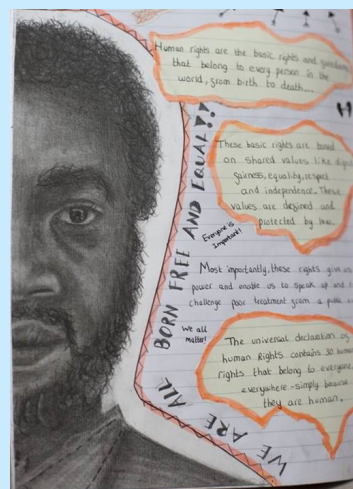 Human rights are the basic rights and freedoms
that belong to every person in the
world, from birth to death...
These basic rights are based
on shared values like
fairness, equality, respect
and independence. These
values are defined and
protected by law.
Everyone is
Important!
Most importantly, these rights give us
power and enable us to speak up and
challenge poor treatment from a
We all
matter!
The universal declaration of
human Rights contains 30 human
rights that belong to everyone,
everywhere - simply because
they are human.
WE ARE ALL BORN FREE AND EQUAL!!
H